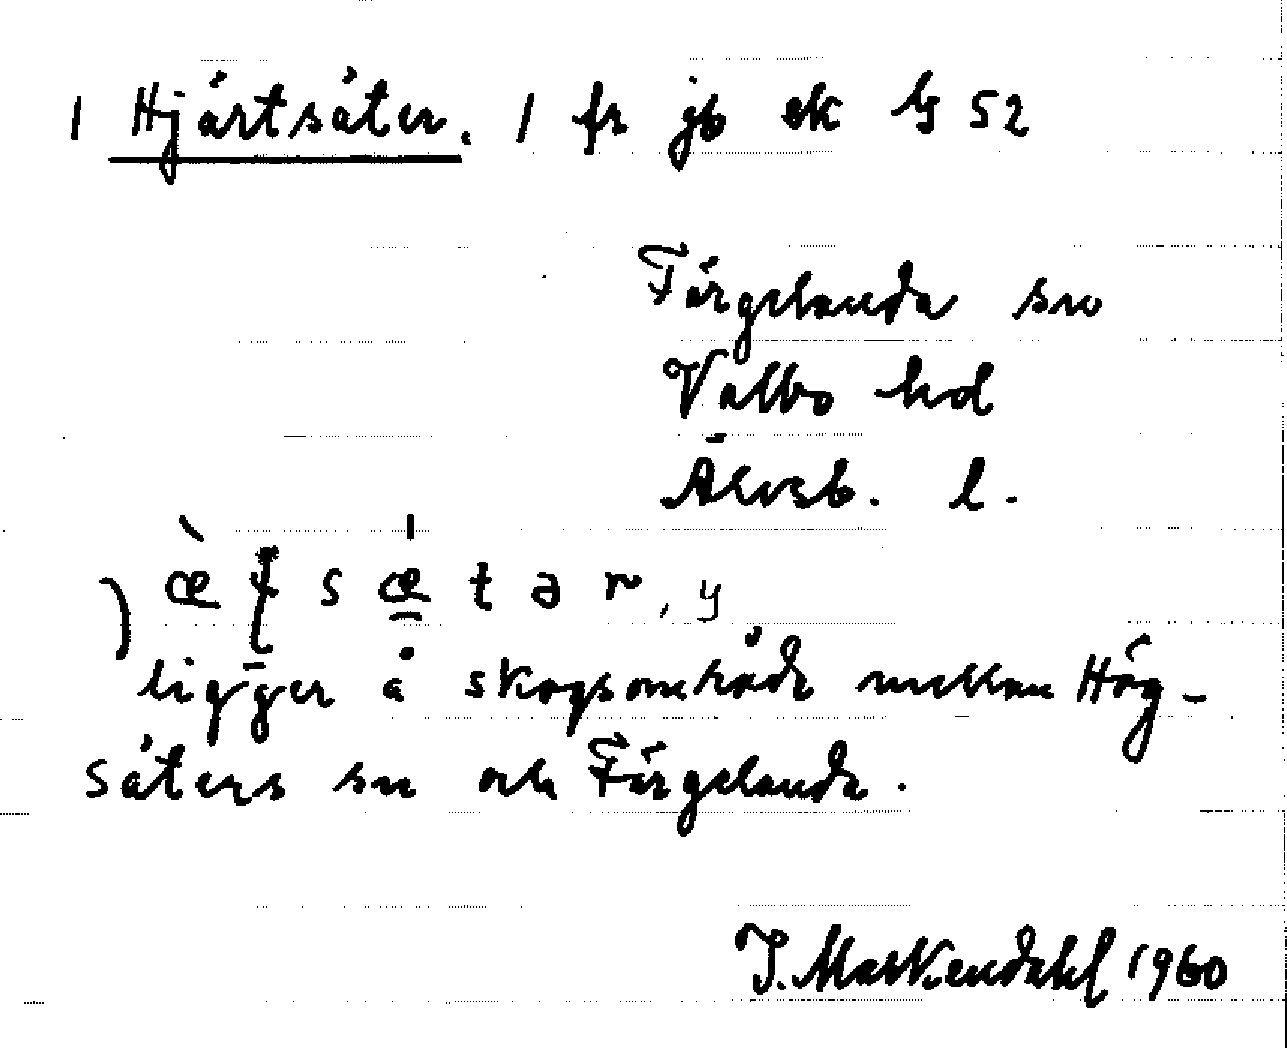 1 Hjärtsäter. 1 fr jb ek G 52
Färgelanda sn
Valbo hd
Älvsb. l.
ligger å skogsområde mellan Hög-
säters sn och Färgelanda.
J. Markendahl 1960